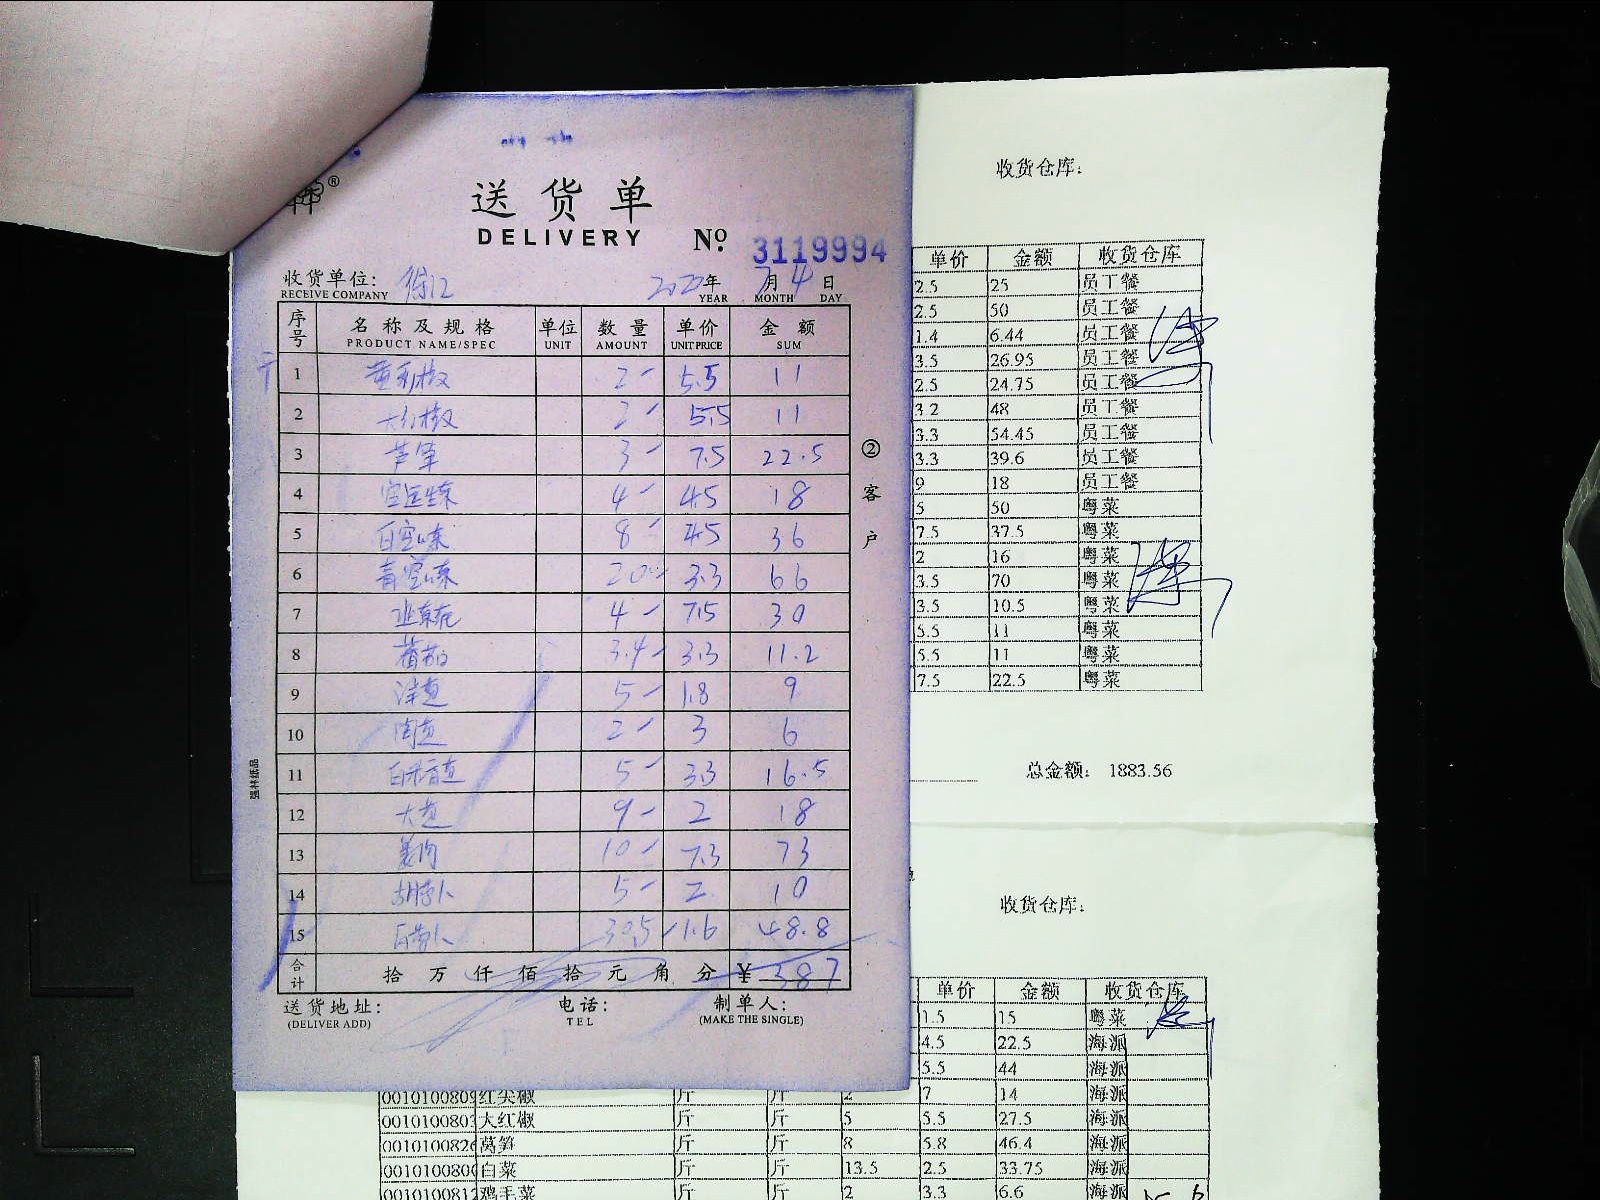 送货单
DELIVERY
№ 3119994
收货单位: 徐汇 2022年 7月 4日
RECEIVE COMPANY YEAR MONTH DAY
序号 名称及规格 单位 数量 单价 金额
PRODUCT NAME/SPEC UNIT AMOUNT UNIT PRICE SUM
1 黄彩椒 2 5.5 11
2 大红椒 2 5.5 11
3 芦笋 3 7.5 22.5
4 4 4.5 18
5 8 4.5 36
6 20 3.3 66
7 4 7.5 30
8 蕃茄 3.4 3.3 11.2
9 洋葱 5 1.8 9
10 2 3 6
11 5 3.3 16.5
12 大葱 9 2 18
13 姜肉 10 7.3 73
14 胡萝卜 5 2 10
15 白萝卜 30.5 1.6 48.8
合计 拾万仟佰拾元角分 ¥ 387
送货地址: 电话: 制单人:
(DELIVER ADD) TEL (MAKE THE SINGLE)
②客户
强林纸品
收货仓库:
单价 金额 收货仓库
2.5 25 员工餐
2.5 50 员工餐
1.4 6.44 员工餐
3.5 26.95 员工餐
2.5 24.75 员工餐
3.2 48 员工餐
3.3 54.45 员工餐
3.3 39.6 员工餐
9 18 员工餐
5 50 粤菜
7.5 37.5 粤菜
2 16 粤菜
3.5 70 粤菜
3.5 10.5 粤菜
5.5 11 粤菜
5.5 11 粤菜
7.5 22.5 粤菜
总金额: 1883.56
收货仓库:
单价 金额 收货仓库
1.5 15 粤菜
4.5 22.5 海派
5.5 44 海派
红尖椒 斤 斤 2 7 14 海派
大红椒 斤 斤 5 5.5 27.5 海派
莴笋 斤 斤 8 5.8 46.4 海派
白菜 斤 斤 13.5 2.5 33.75 海派
鸡毛菜 斤 斤 2 3.3 6.6 海派